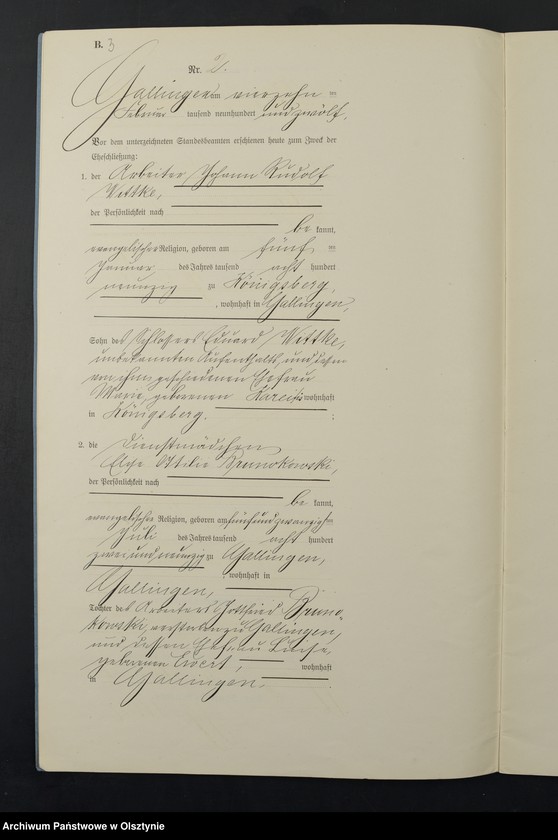 B. 3
Nr. 2.
Gallingen am vierzehn ten
Februar tausend neunhundert und zwölf,
Vor dem unterzeichneten Standesbeamten erschienen heute zum Zweck der
Eheschließung:
1. der Arbeiter Johann Rudolf
Wittke,
der Persönlichkeit nach
be kannt,
evangelischer Religion, geboren am fünf ten
Januar des Jahres tausend acht hundert
neunzig zu Königsberg,
, wohnhaft in Gallingen,
Sohn des Schlossers Eduard Wittke,
unbekannten Aufenthalts, und dessen
von ihm geschiedenen Ehefrau
Marie, geborenen wohnhaft
in Königsberg. ;
2. die Dienstmädchen
Ottilie Brunokowski,
der Persönlichkeit nach
be kannt,
evangelischer Religion, geboren am fünfundzwanzigsten
Juli des Jahres tausend acht hundert
zweiundneunzig zu Gallingen,
, wohnhaft in
Gallingen,
Tochter des Arbeiters Gottfried Bruno-
kowski, verstorben zu Gallingen,
und dessen Ehefrau Luise,
geborenen wohnhaft
in Gallingen.
Archiwum Państwowe w Olsztynie